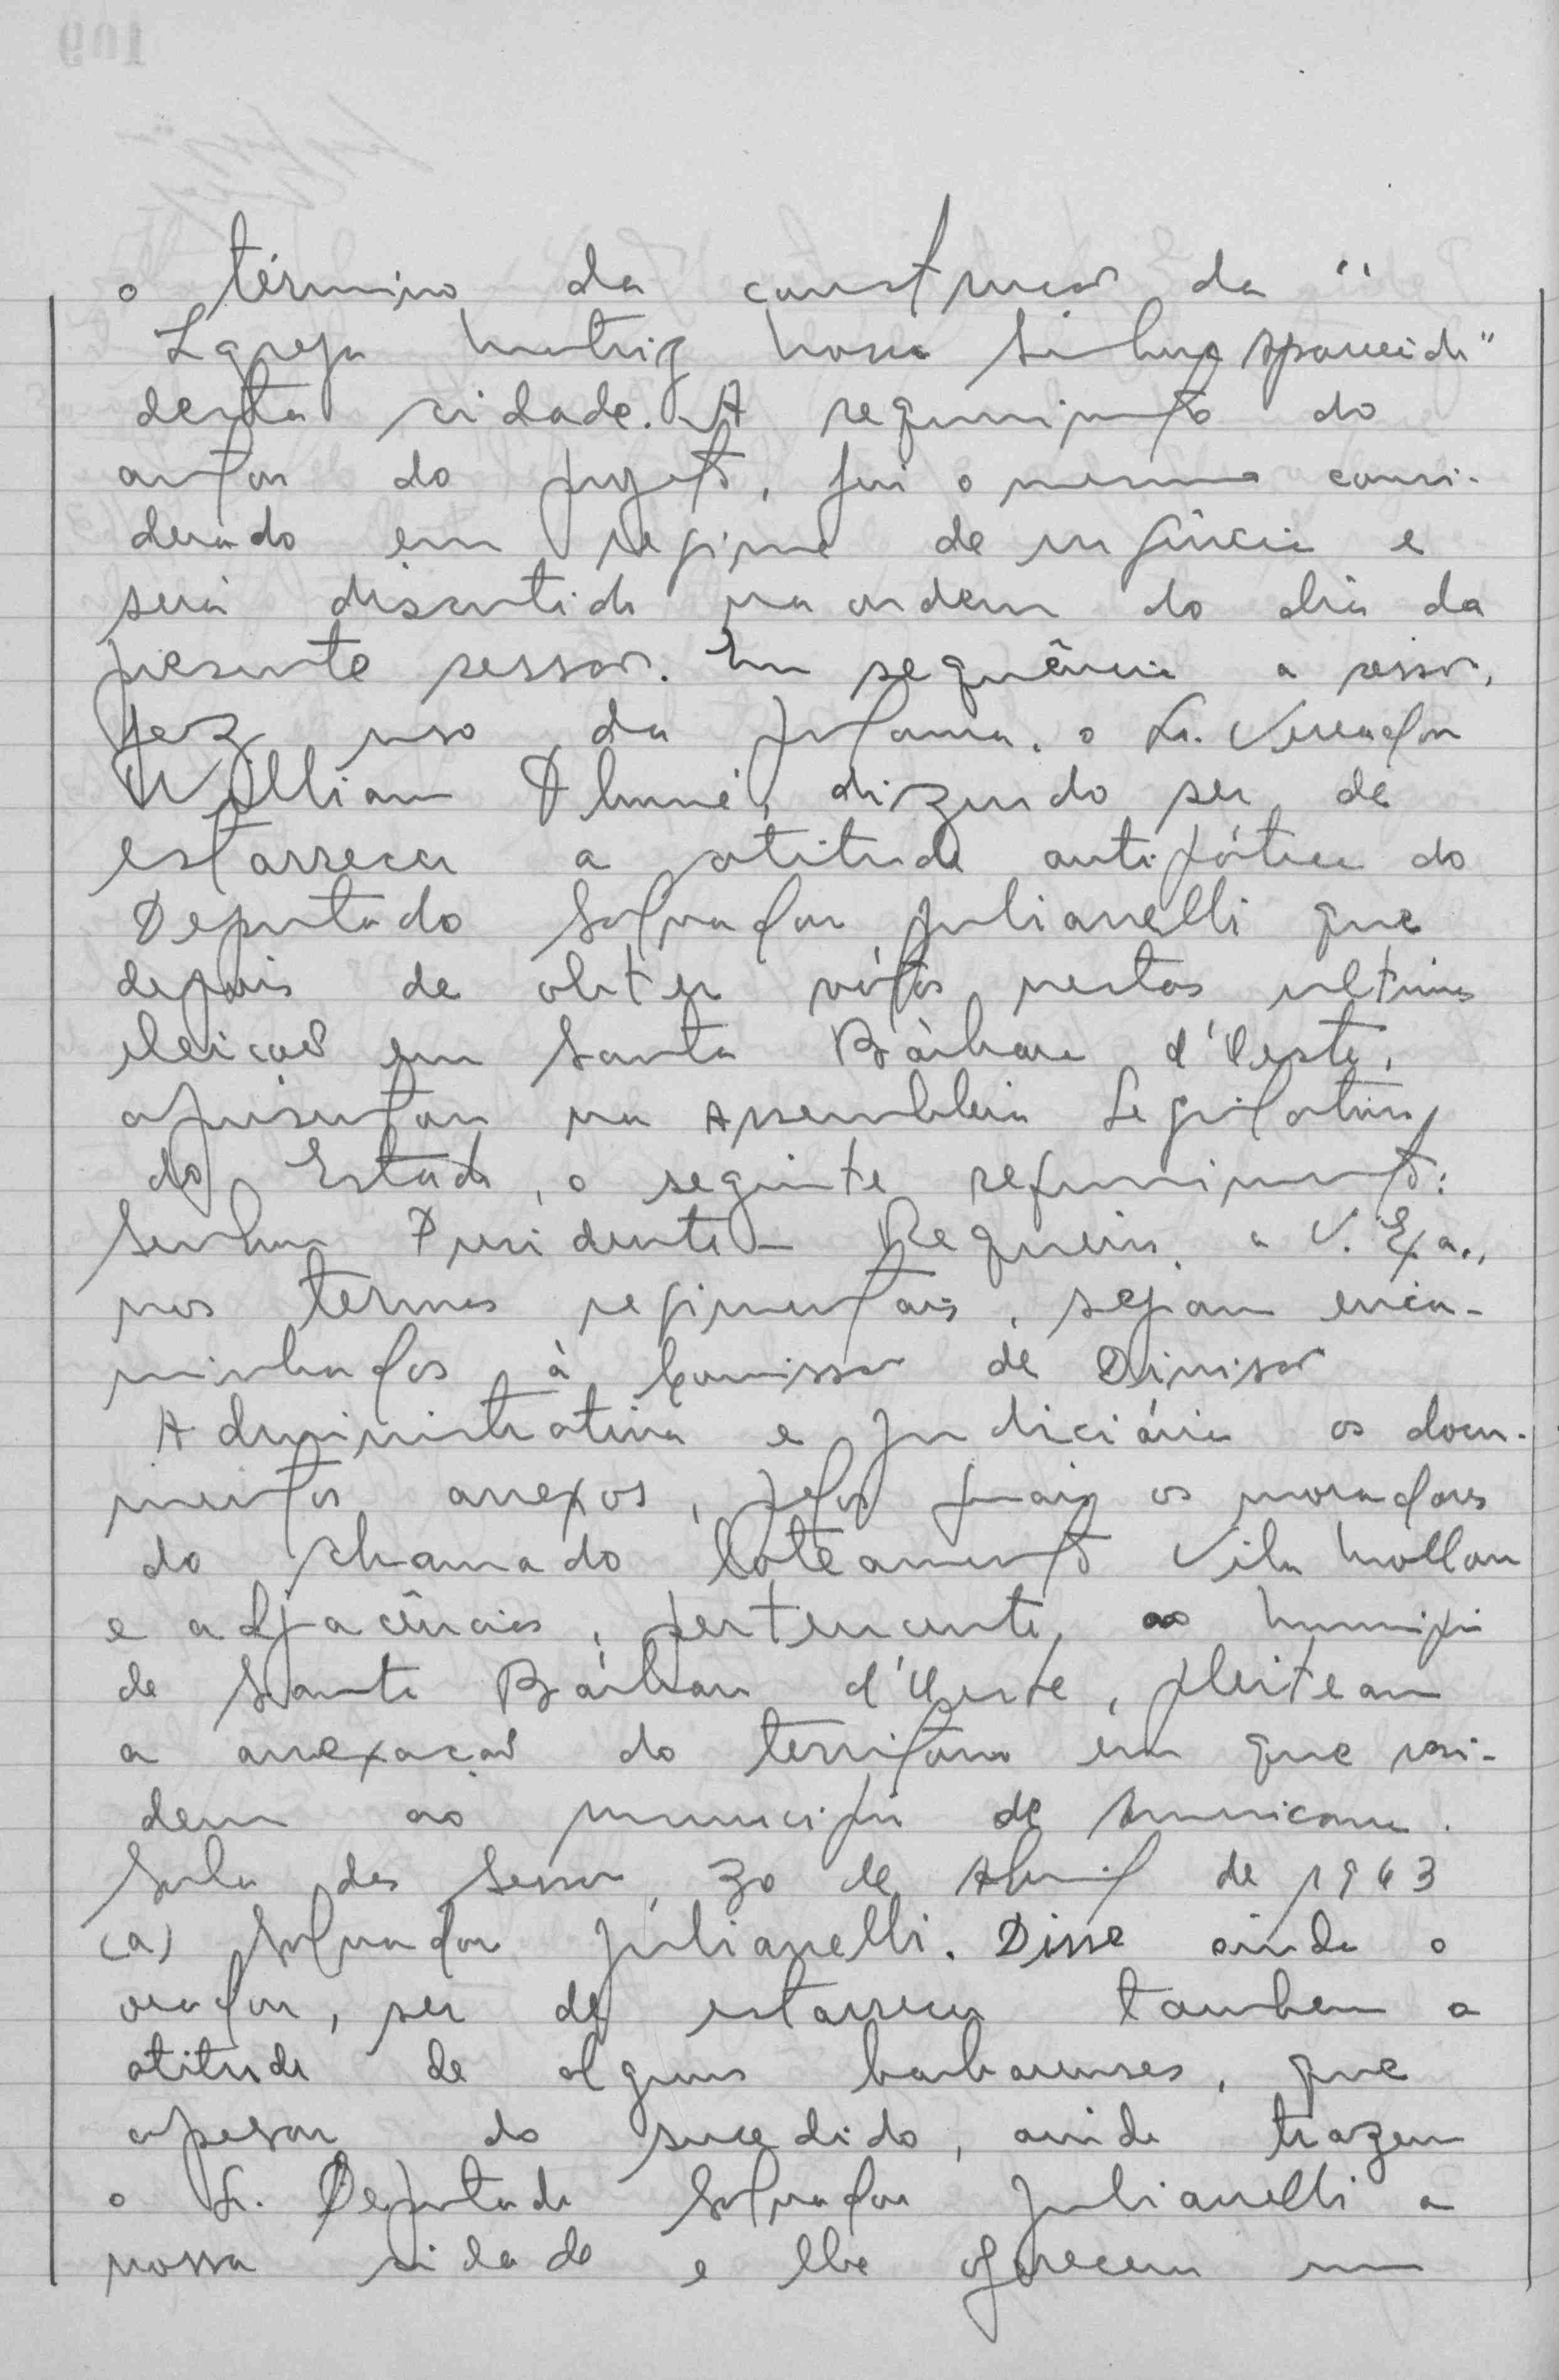 o término da construcão da "
Igreja Matriz Nossa Senhora Aparecida"
desta cidade. A requerimento do
autor do projeto, foi o mesmo consi-
derado em regime de urgência e
será discutido na ordem do dia da
presente sessão. Em sequência a sessão,
fez uso da palavra, o Sr. Vereador
William, dizendo ser de
estarrecer a atitude do
Deputado Salvador Julianelli que
depois de obter vótos nestas ultimas
eleicoes em Santa Bárbara d'Oeste,
apresentou na Assembleia Legislativa
do Estado, o seguinte requerimento:
Senhor Presidente - Requeiro a V. Exa.,
nos termos regimentais, sejam enca-
minhados à Comissão de Divisão
Administrativa e Judiciária os docu-
mentos anexos, pelos quais os moradores
do chamado loteamento Vila Mollon
e adjacências, pertencente ao Municipio
de Santa Bárbara d'Oeste, pleiteam
a anexacão do territorio em que resi-
dem ao municipio de Americana.
Sala das Sessão, 30 de Abril de 1963
(a) Salvador Julianelli. Disse ainda o
orador, ser de estarrecer tambem a
atitude de alguns barbarenses, que
apesar do sucedido, ainda trazem
o Sr. Deputado Salvador Julianelli a
nossa cidade e lhe oferecem um